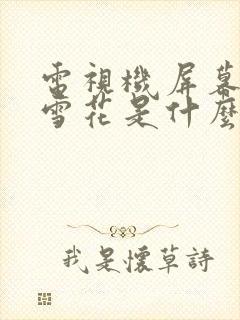 電視機屏幕
雪花是什麼
我是懷草詩